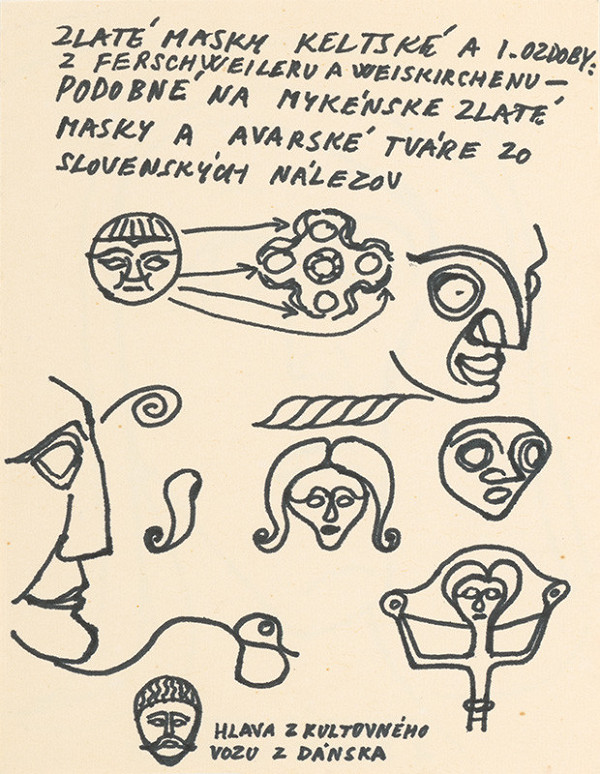 ZLATÉ MASKY KELTSKÉ A I. OZDOBY:
Z FERSCHWEILERU A WEISKIRCHENU —
PODOBNÉ NA MYKÉNSKE ZLATÉ
MASKY A AVARSKÉ TVÁRE ZO
SLOVENSKÝCH NÁLEZOV
HLAVA Z KULTOVNÉHO
VOZU Z DÁNSKA